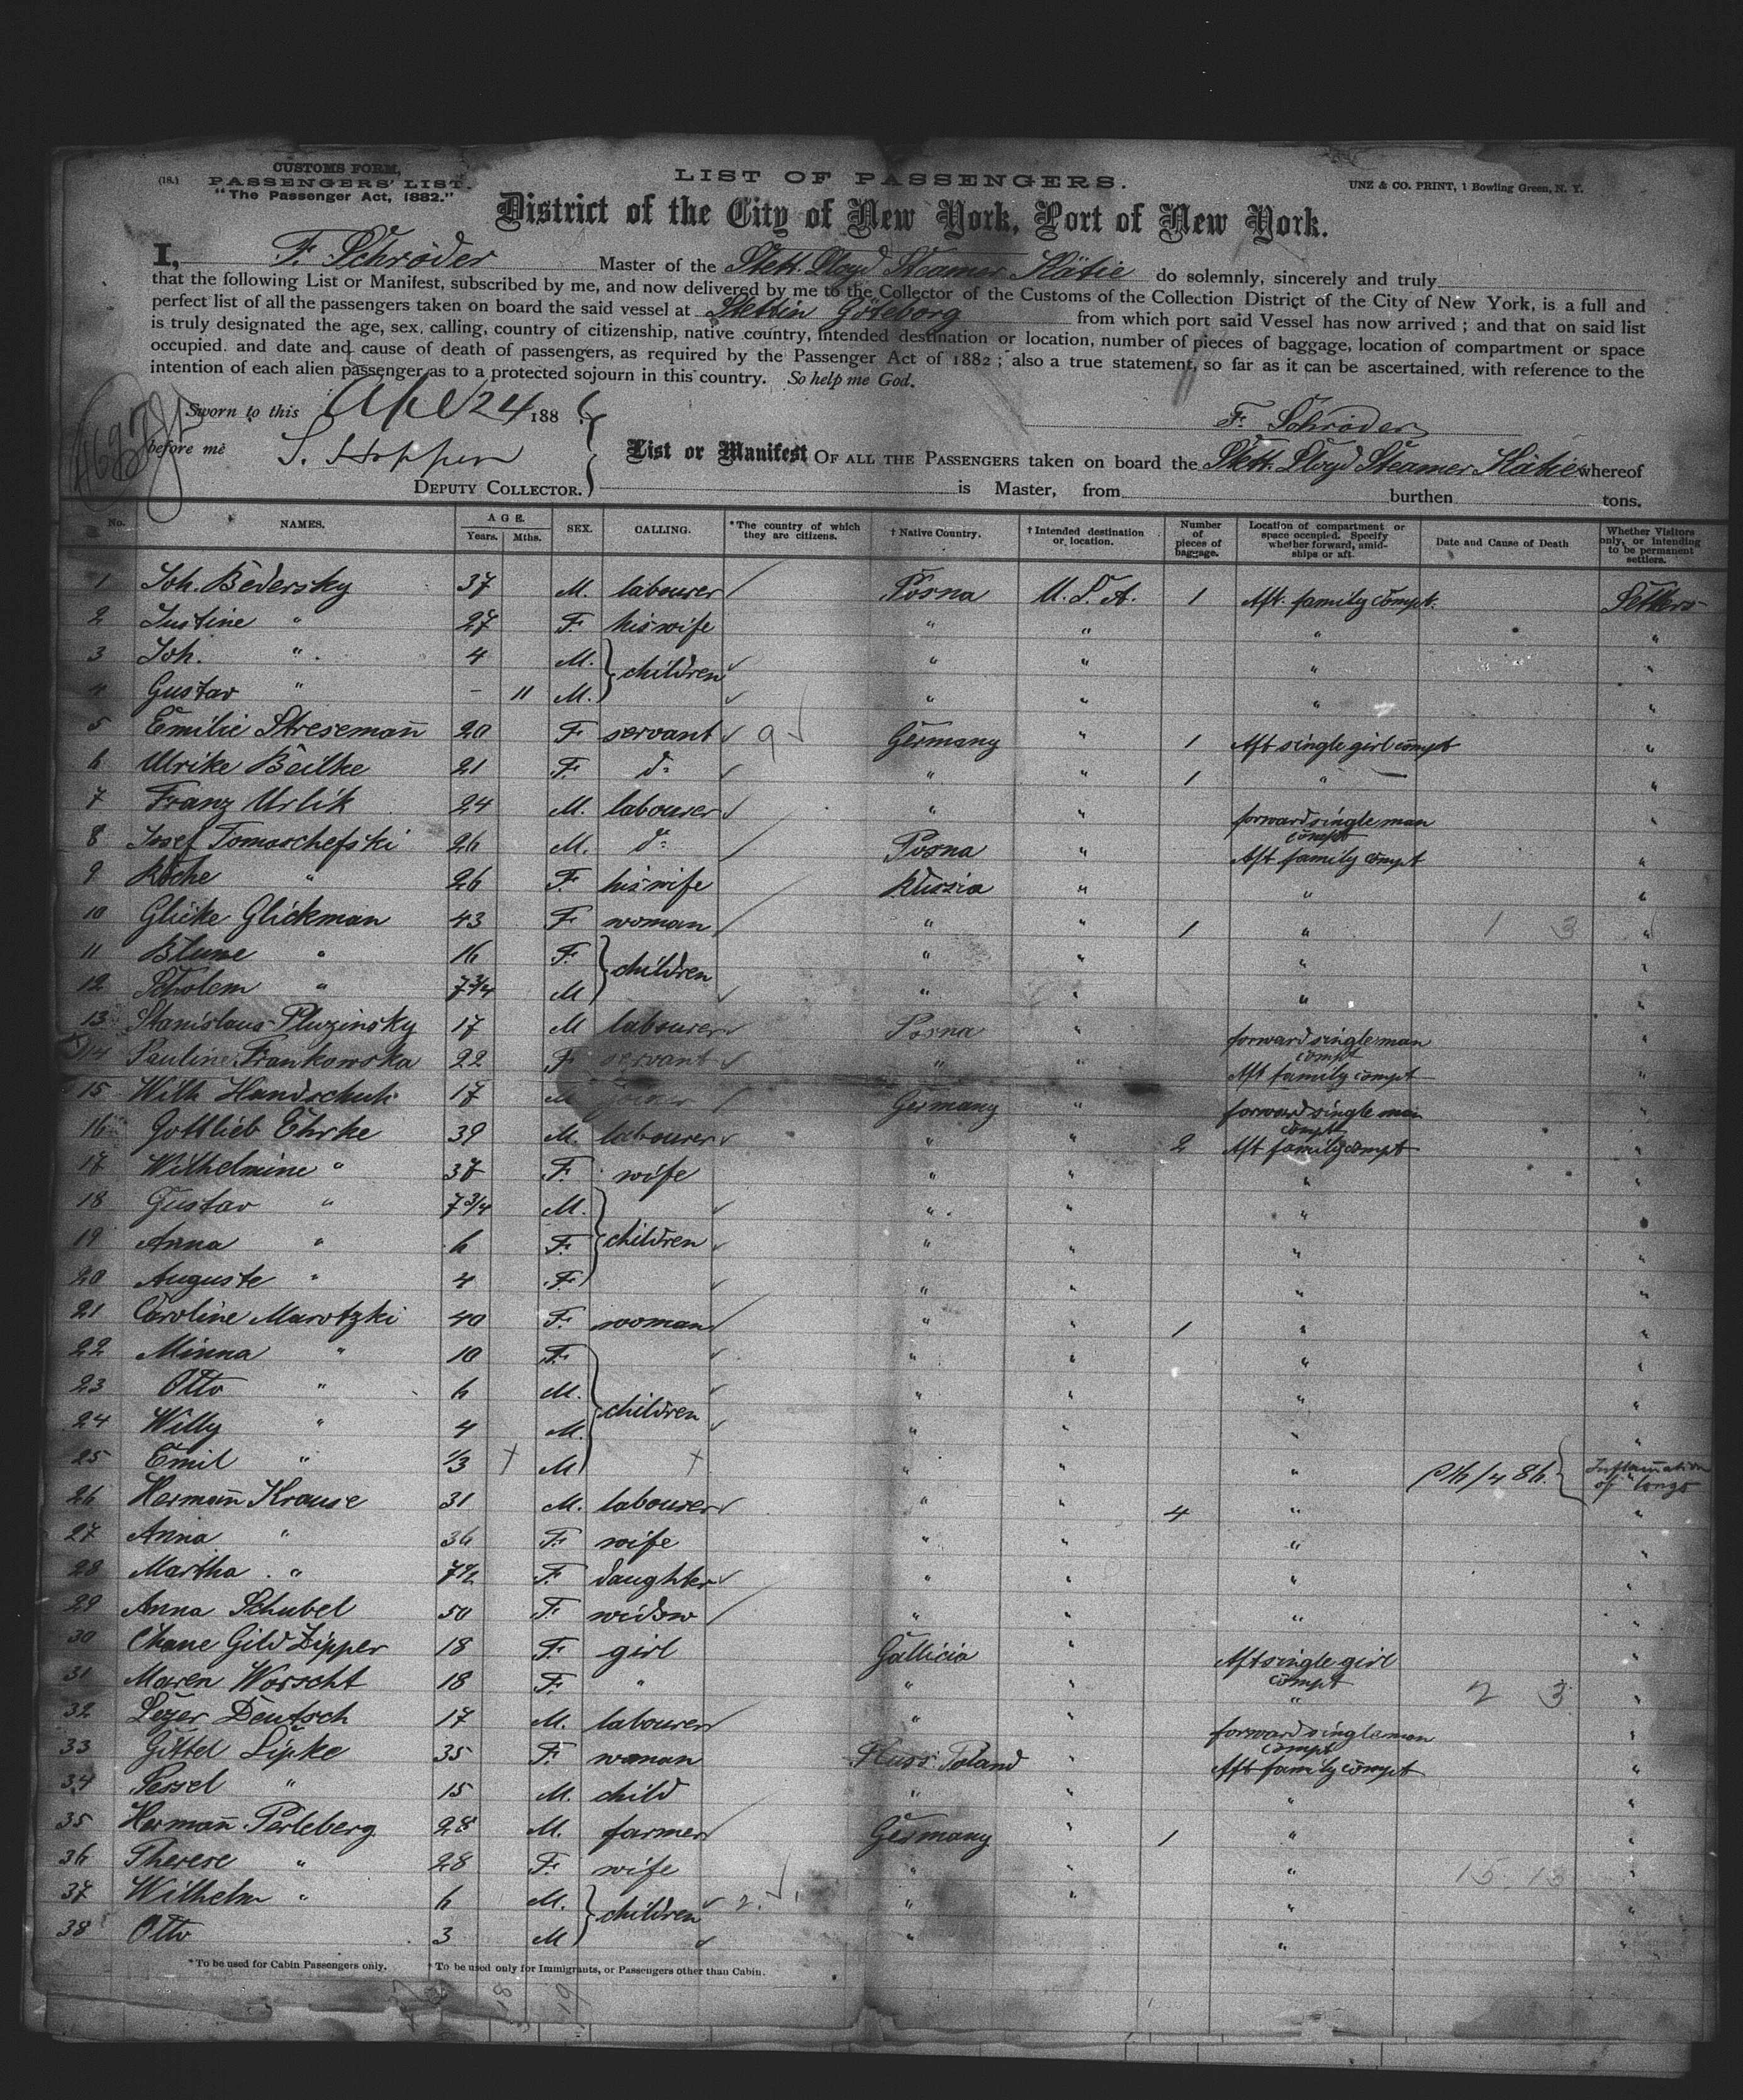 (18.)
CUSTOMS FORM,
PASSENGERS' LIST.
"The Passenger Act, 1882."
LIST OF PASSENGERS.
UNZ & CO. PRINT, 1 Bowling Green, N. Y.
District of the City of New York, Port of New York.
I, F. Schröder Master of the Stett. Lloyd Steamer Kätie do solemnly, sincerely and truly
that the following List or Manifest, subscribed by me, and now delivered by me to the Collector of the Customs of the Collection District of the City of New York, is a full and
perfect list of all the passengers taken on board the said vessel at Stettin Göteborg from which port said Vessel has now arrived; and that on said list
is truly designated the age, sex, calling, country of citizenship, native country, intended destination or location, number of pieces of baggage, location of compartment or space
occupied. and date and cause of death of passengers, as required by the Passenger Act of 1882; also a true statement, so far as it can be ascertained, with reference to the
intention of each alien passenger as to a protected sojourn in this country. So help me God.
Sworn to this Apl 24 1886
F. Schröder
before me S. Hoppen
DEPUTY COLLECTOR.
List or Manifest OF ALL THE PASSENGERS taken on board the Stett. Lloyd Steamer Kätie whereof
is Master, from burthen tons.
No. NAMES. AGE. Years. Mths. SEX. CALLING. *The country of which they are citizens. † Native Country. † Intended destination or location. Number of pieces of baggage. Location of compartment or space occupied. Specify whether forward, amidships or aft. Date and Cause of Death Whether Visitors only, or intending to be permanent settlers.
1 Joh. Bedersky 37 M. labourer Posna U. S. A. 1 Aft. family compt. Settlers
2 Justine " 27 F. his wife " " " "
3 Joh. " 4 M. children " " " "
4 Gustav " - 11 M. " " " "
5 Emilie Stresemañ 20 F servant 9 Germany " 1 Aft single girl compt "
6 Ulrike Beilke 21 F. do " " 1 " "
7 Franz Urlik 24 M. labourer " " forward single man compt "
8 Josef Tomaschefski 26 M. do Posna " Aft family compt "
9 Roche " 26 F. his wife Russia " " "
10 Glicke Glickman 43 F woman " " 1 " 1 3 "
11 Blume " 16 F. children " " " "
12 Scholem " 7 3/4 M " " " "
13 Stanislaus Pluzinsky 17 M labourer Posna " forward single man compt "
14 Pauline Frankowska 22 F servant " " Aft family compt "
15 Wilh Handschuh 17 M joiner Germany " forward single man compt "
16 Gottlieb Ehrke 39 M. labourer " " 2 Aft family compt "
17 Wilhelmine " 37 F. wife " " " "
18 Gustav " 7 3/4 M. children " " " "
19 Anna " 6 F. " " " "
20 Auguste " 4 F. " " " "
21 Caroline Marotzki 40 F. woman " " 1 " "
22 Minna " 10 F. children " " " "
23 Otto " 6 M. " " " "
24 Willy " 4 M. " " " "
25 Emil " 1/3 † M † " " " 16/4 86. Inflamation of longs
26 Hermañ Krause 31 M. labourer " " 4 " "
27 Anna " 36 F. wife " " " "
28 Martha " 7 1/2 F. daughter " " " "
29 Anna Schubel 50 F. widow " " " "
30 Chane Gild Zipper 18 F. girl Gallicia " Aft single girl compt "
31 Maren Worscht 18 F. " " " " 2 3 "
32 Lezer Deutsch 17 M. labourer " " forward single man compt "
33 Gittel Lipke 35 F. woman Russ: Poland " Aft family compt "
34 Pessel " 15 M. child " " " "
35 Hermañ Perleberg 28 M. farmer Germany " 1 " "
36 Therese " 28 F. wife " " " 15. 13 "
37 Wilhelm " 6 M. children 2. " " " "
38 Otto 3 M " " "
*To be used for Cabin Passengers only. †To be used only for Immigrants, or Passengers other than Cabin.
18 19